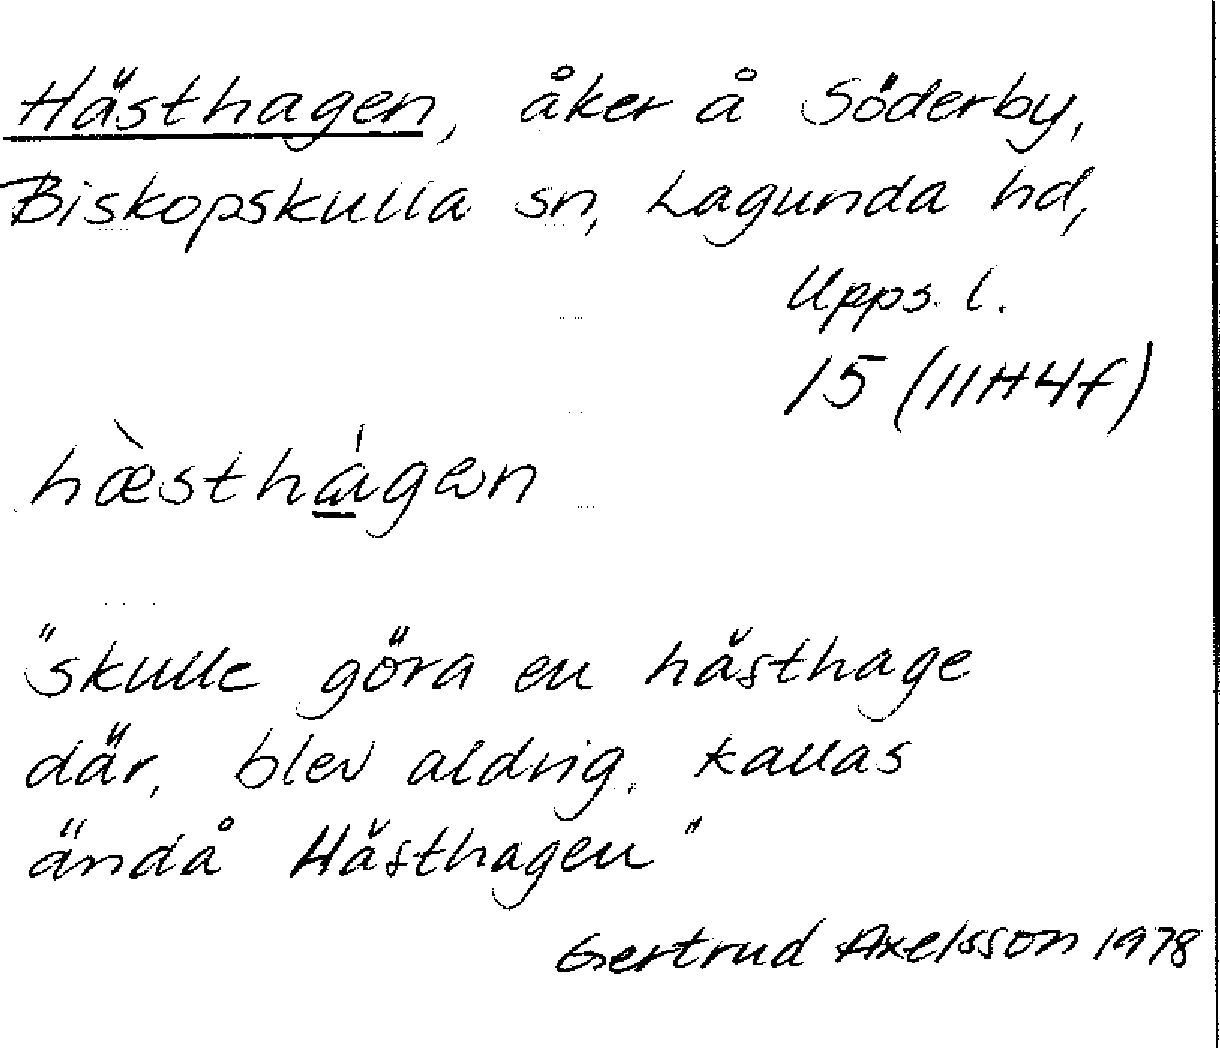 Hästhagen, åker å Söderby,
Biskopskulla sn, Lagunda hd,
Upps. l.
15 (11H4f)
hæ̀sthá̱gən
"skulle göra en hästhage
där, blev aldrig, kallas
ändå Hästhagen"
Gertrud Axelsson 1978